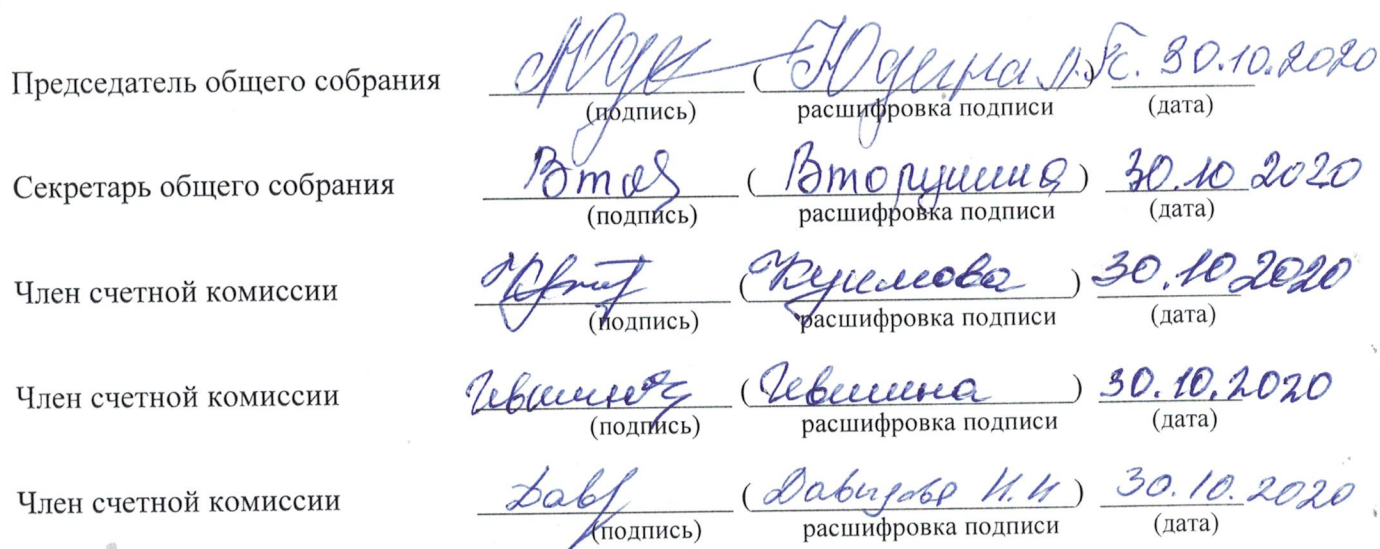 Председатель общего собрания (Юдина Л.С.) 30.10.2020
(подпись) расшифровка подписи (дата)
Секретарь общего собрания (Вторушина) 30.10 2020
(подпись) расшифровка подписи (дата)
Член счетной комиссии (Куимова) 30.10 2020
(подпись) расшифровка подписи (дата)
Член счетной комиссии (Ившина) 30.10.2020
(подпись) расшифровка подписи (дата)
Член счетной комиссии (Давыдова Н.Н) 30.10.2020
(подпись) расшифровка подписи (дата)